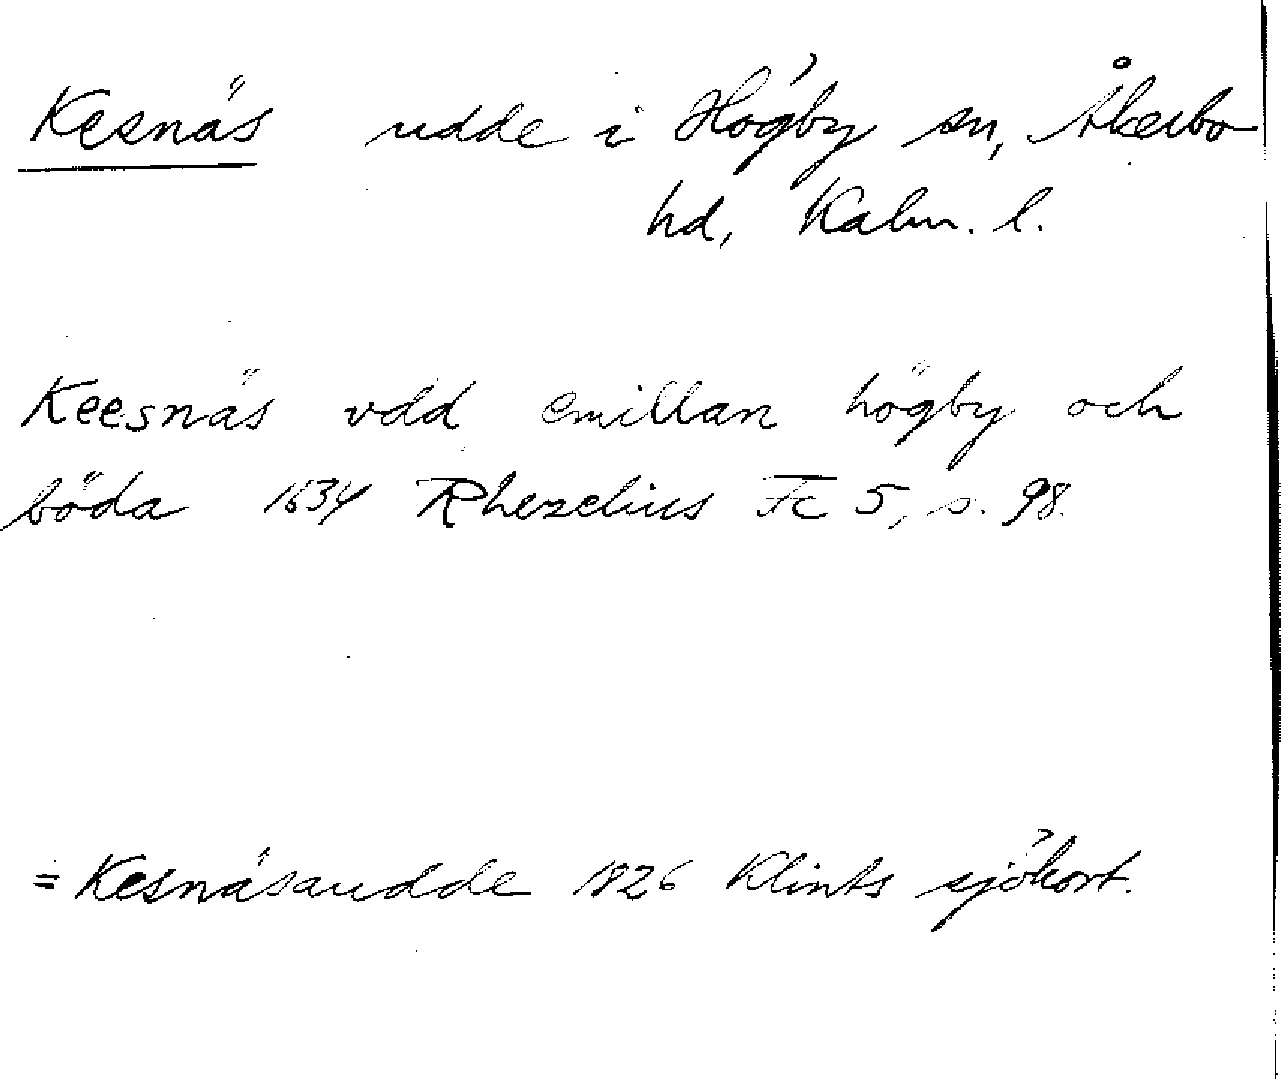 Kesnäs udde i Högby sn, Åkerbo
hd, Kalm. l.
Keesnäs vdd emillan högby och
böda 1634 Rhezelius Fc 5, s. 98.
= Kesnäsaudde 1826 Klints sjökort.